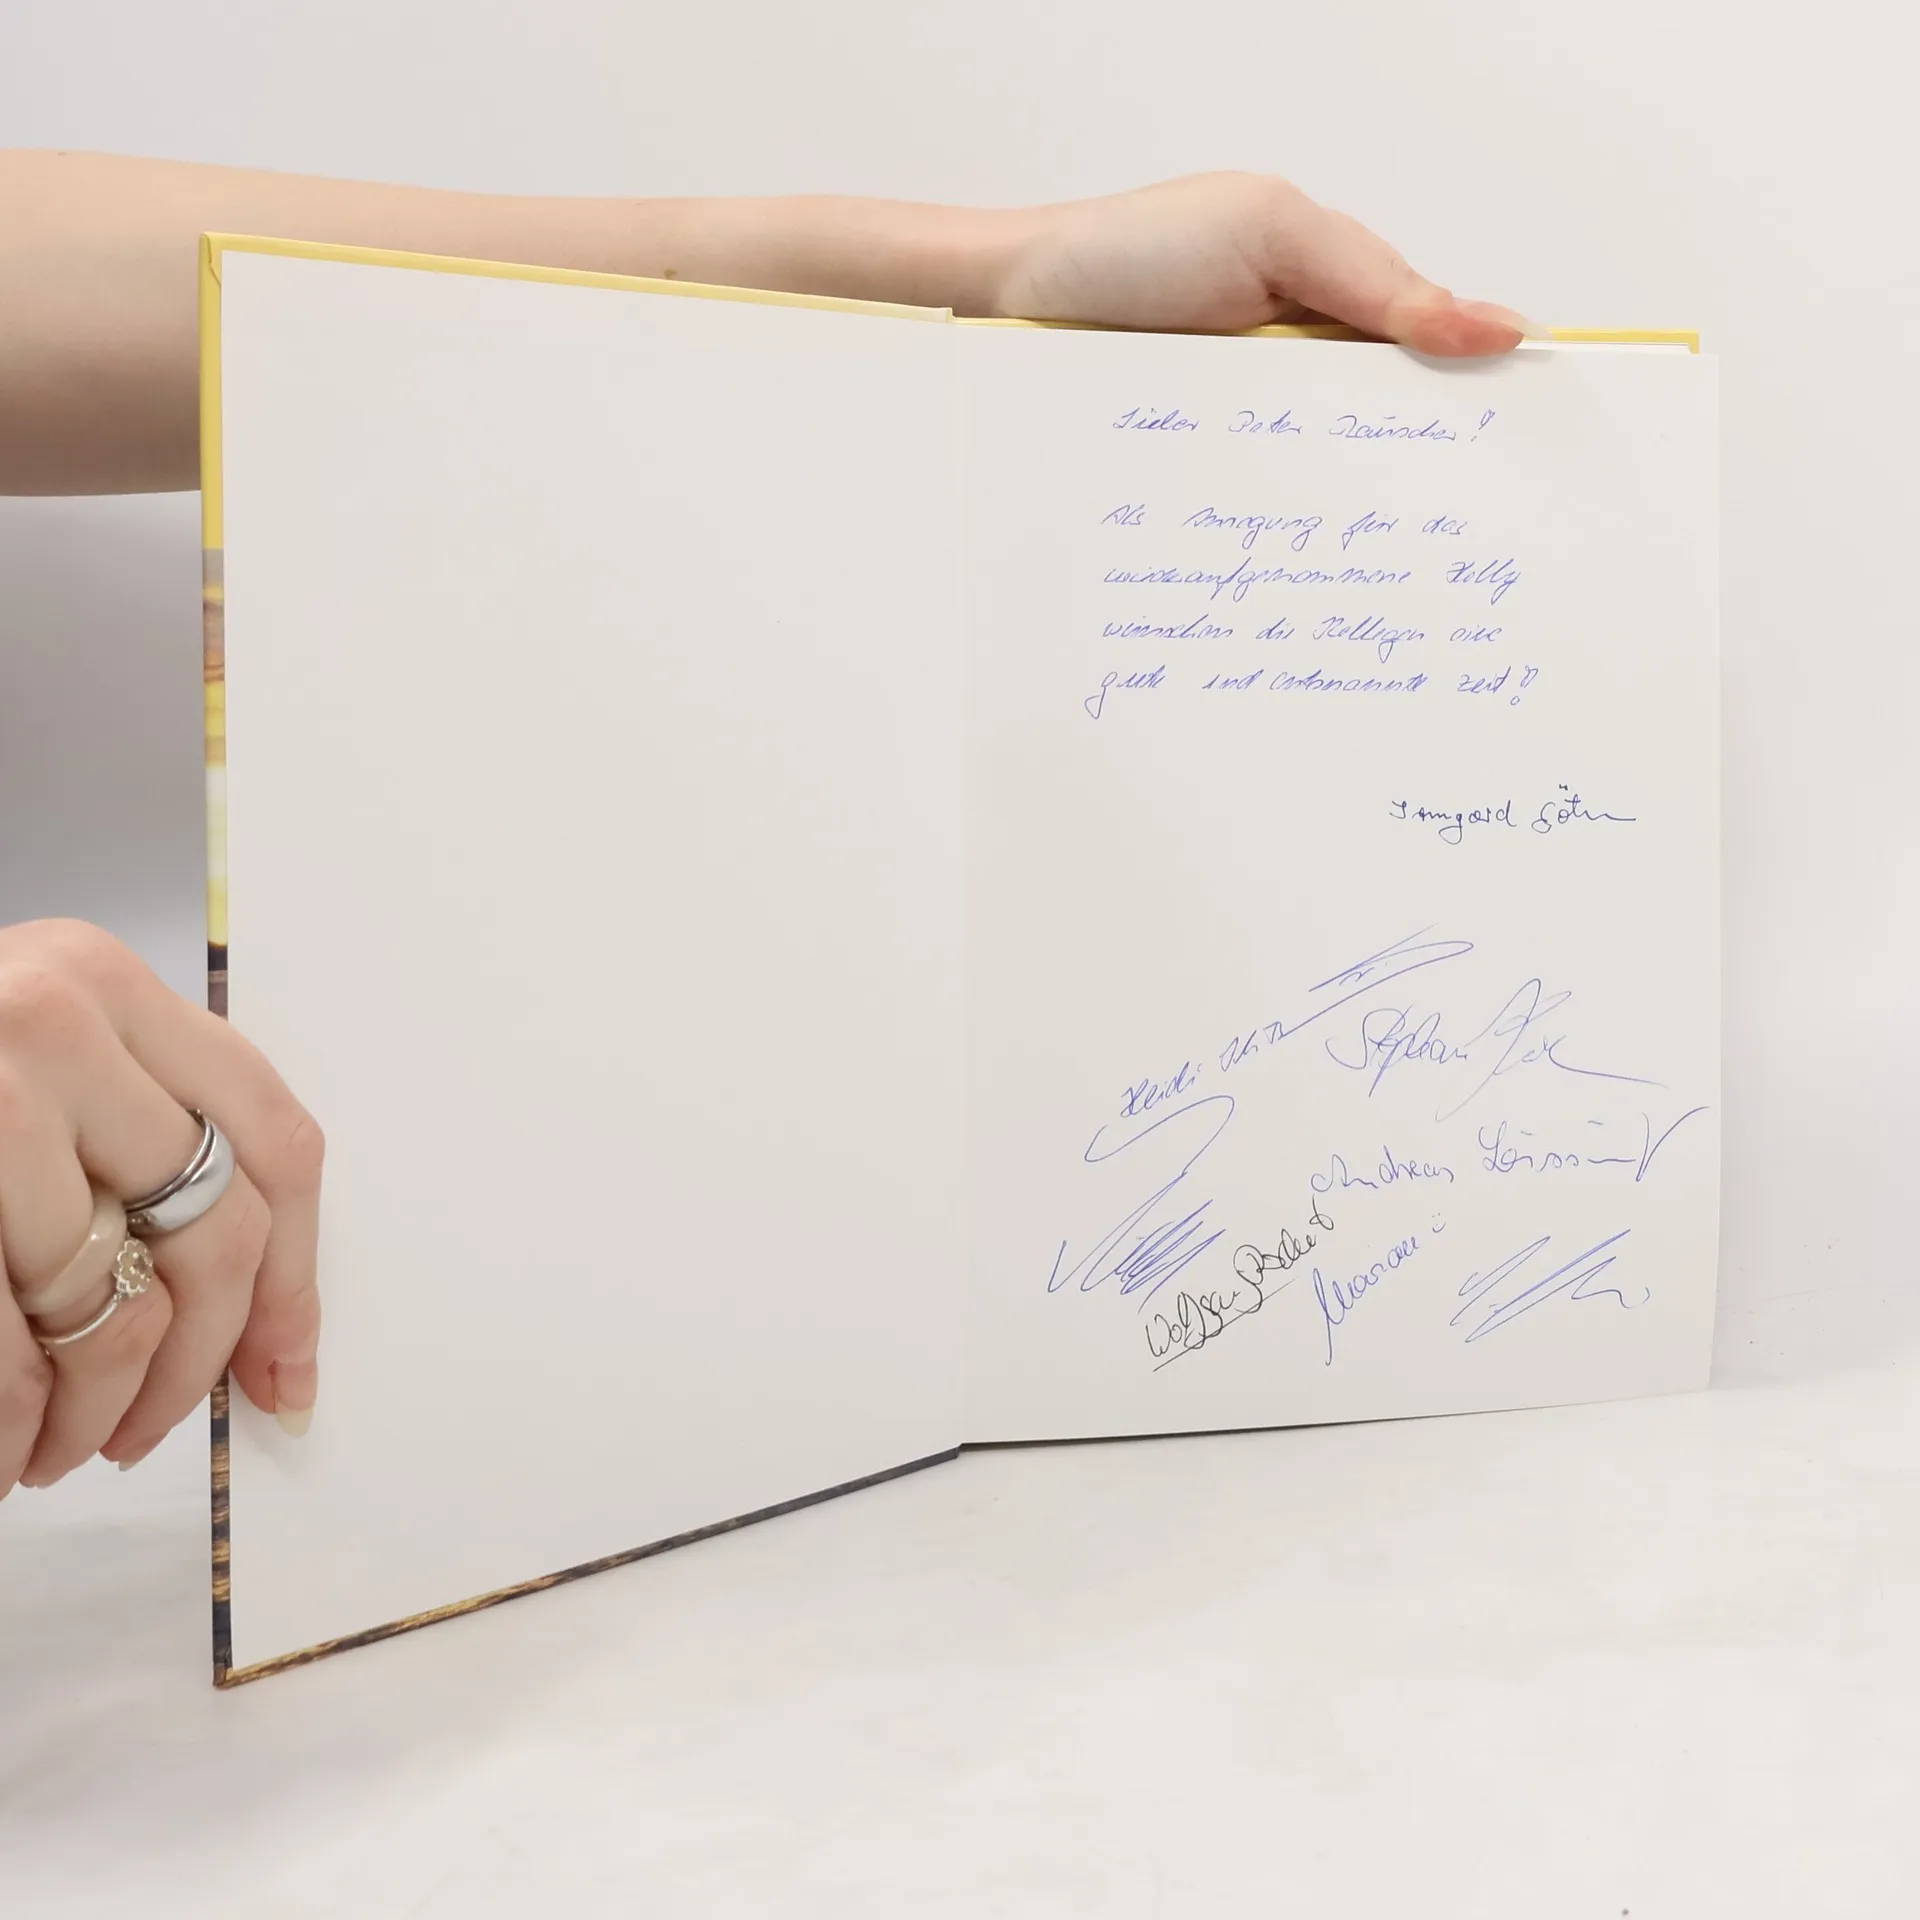 Lieber Peter Räuscher!
Als Anregung für das
wideraufgenommene Hobby
wünschen die Kollegen eine
gute und entspannte Zeit!
Irmgard
Heidi
Stephan
Andreas
Wolfgang
Marion :)